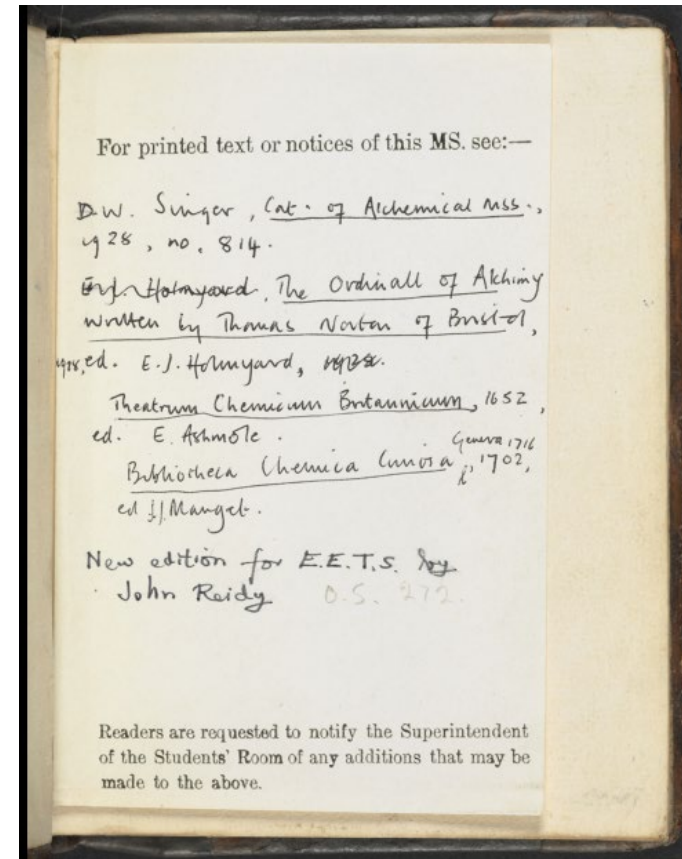 For printed text or notices of this MS. see:—
D.W. Singer, Cat. of Alchemical MSS.,
1928, no. 814.
E.J. Holmyard, The Ordinall of Alchimy
written by Thomas Norton of Bristol,
ed. E.J. Holmyard, 1928.
Theatrum Chemicum Britannicum, 1652,
ed. E. Ashmole.
Geneva 1716
Bibliotheca Chemica Curiosa, 1702,
ed J.J. Manget.
New edition for E.E.T.S. by
John Reidy O.S. 272.
Readers are requested to notify the Superintendent
of the Students' Room of any additions that may be
made to the above.